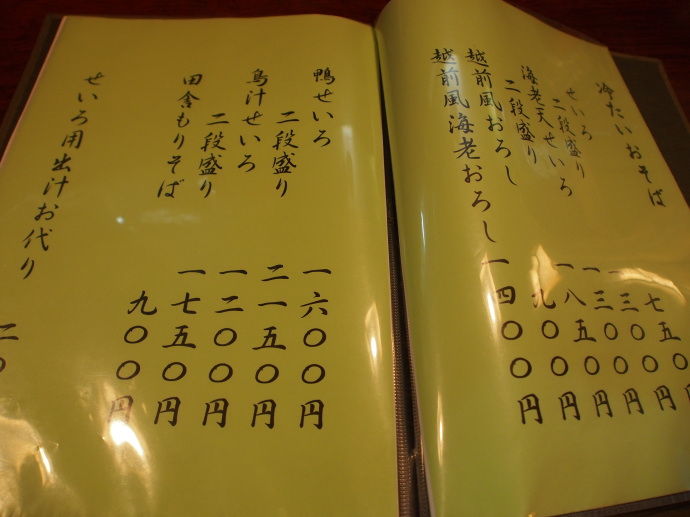 冷たいおそば
せいろ 七五〇
二段盛り 一三〇〇円
海老天せいろ 一三〇〇円
二段盛り 一八五〇円
越前風おろし 九〇〇円
越前風海老おろし 一四〇〇円
鴨せいろ 一六〇〇円
二段盛り 二一五〇円
鳥汁せいろ 一二〇〇円
二段盛り 一七五〇円
田舎もりそば 九〇〇円
せいろ用出汁お代り 二〇